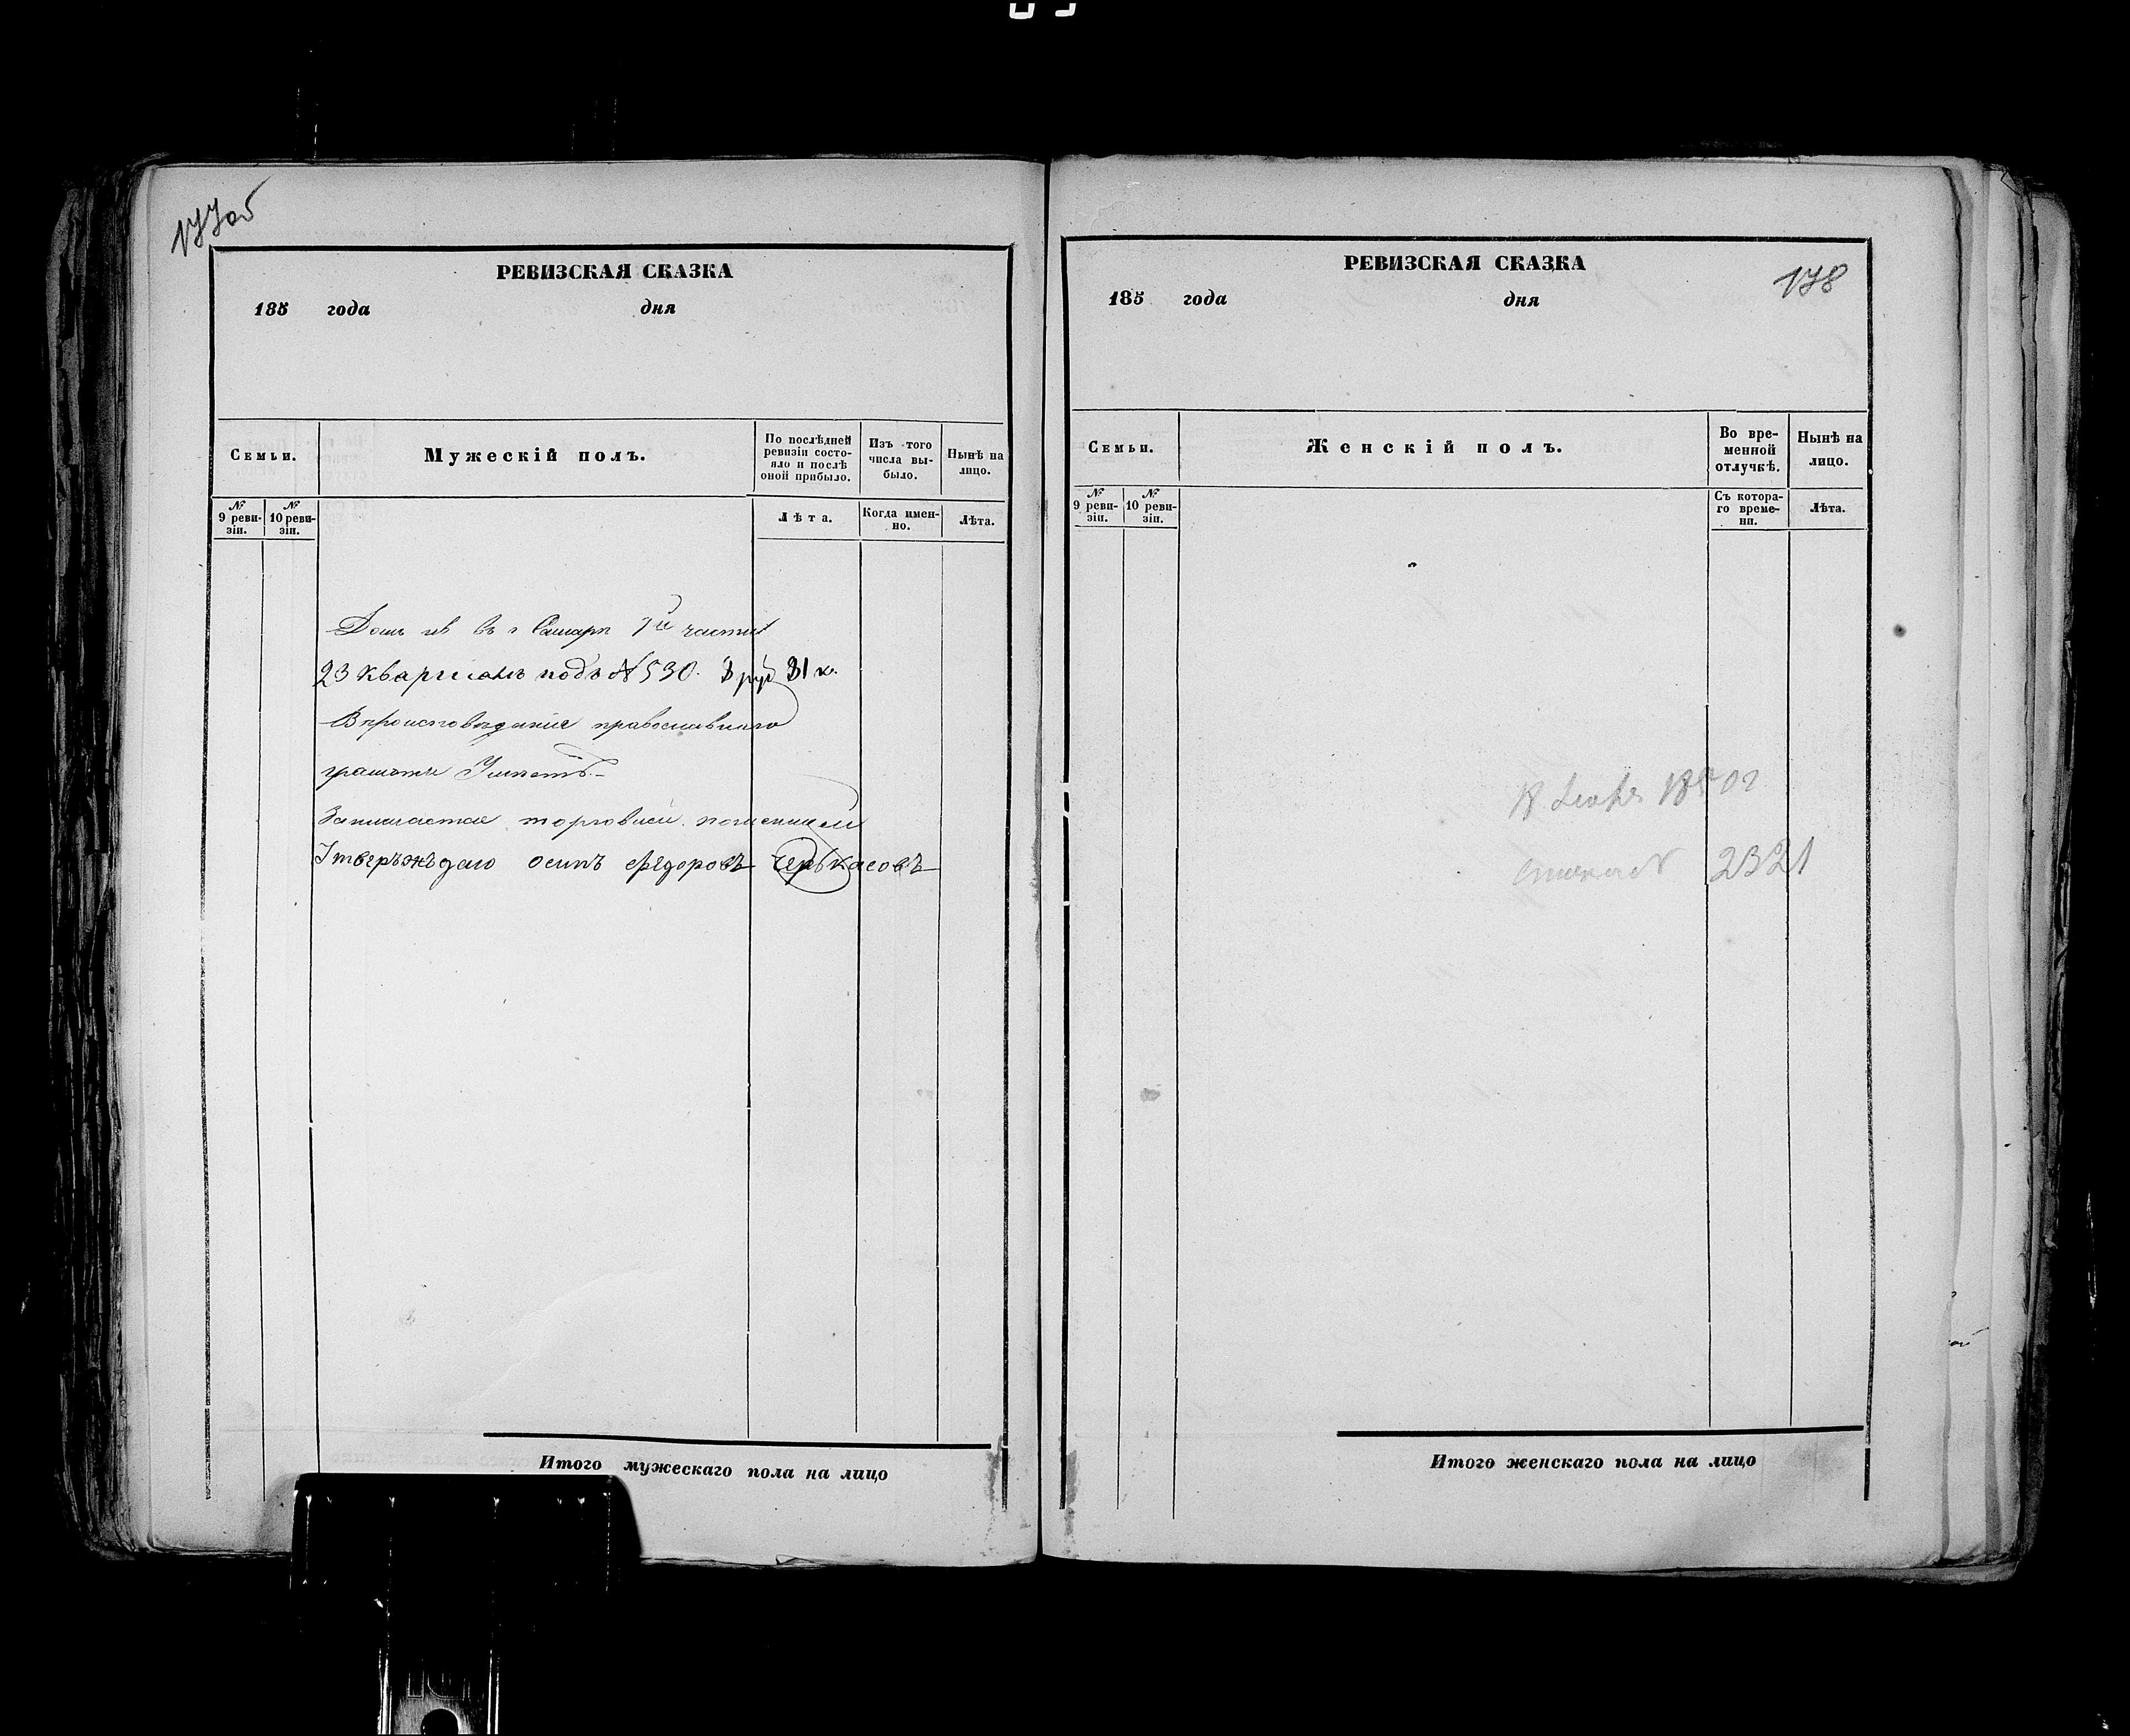 177об
РЕВИЗСКАЯ СКАЗКА
185 года дня
Семьи.
Мужескій полъ.
По послѣдней ревизіи состояло и послѣ оной прибыло.
Изъ того числа выбыло.
Нынѣ на лицо.
№ 9 ревизіи.
№ 10 ревизіи.
Лѣта.
Когда именно.
Лѣта.
Домъ въ г Самарѣ части
23 Кварталъ подъ № 530. руб 31 к.
Вѣроисповеданія православнаго
грамоте Умѣетъ
Занимается торговлей
Утверъжъдаю осипъ Федоровъ Черькасовъ
Итого мужескаго пола на лицо
178
РЕВИЗСКАЯ СКАЗКА
185 года дня
Семьи.
Женскій полъ.
Во временной отлучкѣ.
Нынѣ на лицо.
№ 9 ревизіи.
№ 10 ревизіи.
Съ котораго времени.
Лѣта.
18
2321
Итого женскаго пола на лицо